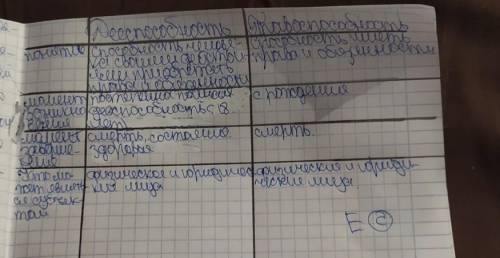 Дееспособность Правоспособность
понятие
способность челове-
ка своими действи-
ями приобретать
права и обязанности
способность иметь
права и обязанности
момент
возникно
вения
полная
дееспособность с 18
лет
с рождения
момент
прекраще-
ния
смерть, состояние
здоровья
смерть.
Кто мо
жет являть
ся субъек-
том
физические и юридичес
кие лица
физические и юриди-
ческие лица
Е С